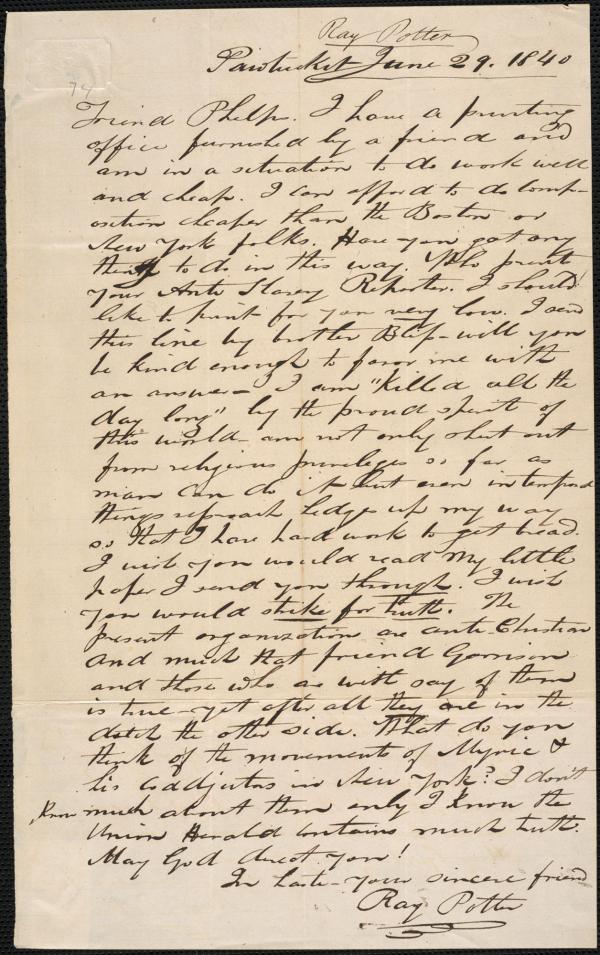 Ray Potter
Pawtucket June 29. 1840
74
Friend Phelps. I have a printing
office furnished by a friend and
am in a situation to do work well
and cheap. I can afford to do comp-
osition cheaper than the Boston or
New York folks. Have you got any
thing to do in this way. Who prints
your Anti Slavery Reporter. I should
like to print for you very low. I send
this line by brother will you
be kind enough to favor me with
an answer - I am "killed all the
day long" by the proud spirit of
this world - am not only shut out
from religious privileges so far as
man can do it but even in temporal
things reproach hedges up my way
so that I have hard work to get bread.
I wish you would read my little
paper I send you through. I wish
you would strike for truth. The
present organization are anti-Christian
and much that friend Garrison
and those who are with say of them
is true - yet after all they are in the
ditch the other side. What do you
think of the movements of Myric &
his coadjutors in New York? I don't
know much about them only I know the
Union Herald contains much truth.
May God direct you!
In haste - your sincere friend
Ray Potter